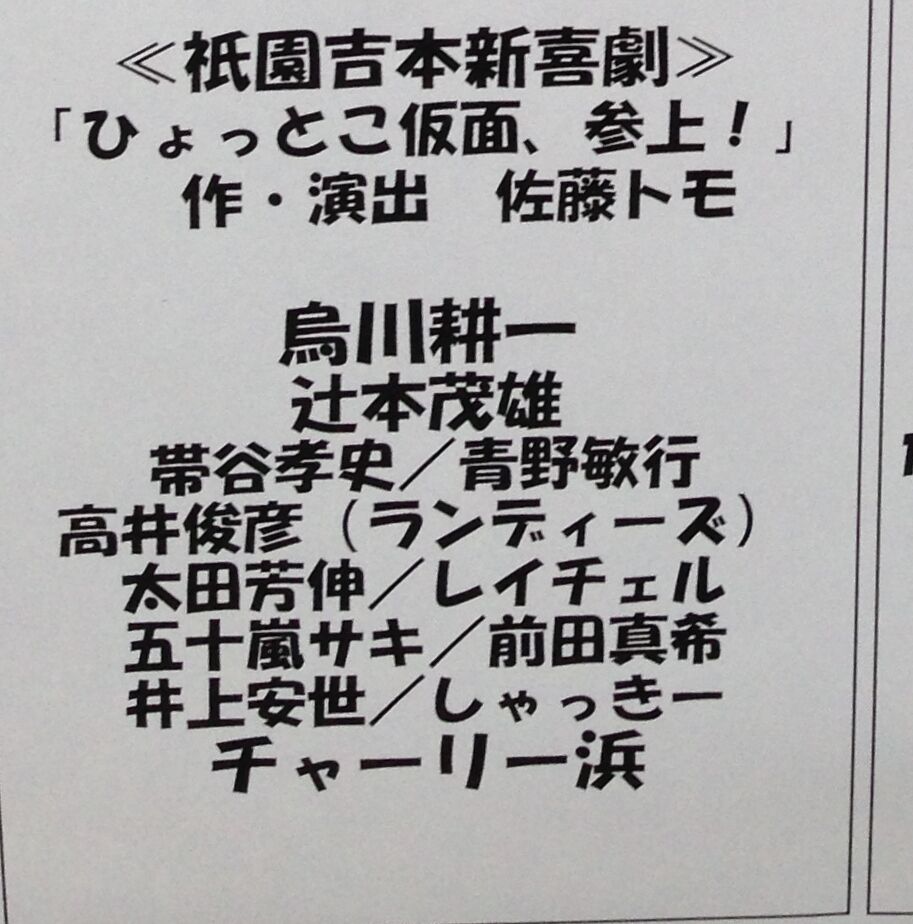 ≪祇園吉本新喜劇≫
「ひょっとこ仮面、参上！」
作・演出　佐藤トモ
烏川耕一
辻本茂雄
帯谷孝史／青野敏行
高井俊彦（ランディーズ）
太田芳伸／レイチェル
五十嵐サキ／前田真希
井上安世／しゃっきー
チャーリー浜